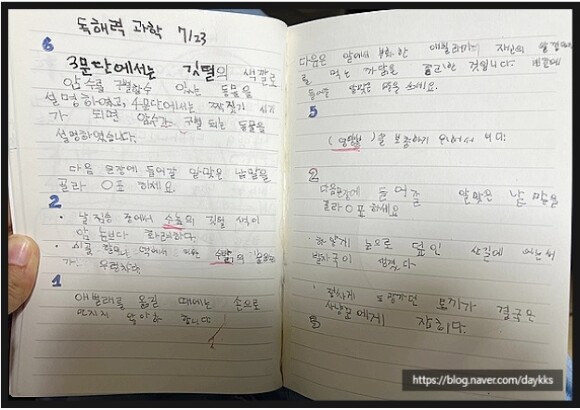 독해력 과학 7/23
6
3문단에서는 깃털의 색깔로
암수를 구별할수 있는 동물을
설명하였고, 4문단에서는 짝짓기 시기
가 되면 암수가 구별 되는 동물을
설명하였습니다.
다음 문장에 들어갈 알맞은 낱말을
골라 O표 하세요.
2
· 날짐승 중에서 수놈의 깃털 색이
암놈보다 화려하다.
· 시골 할머니 댁에서 키우는 수탉의 울음소리
가 우렁차다.
1
애벌레를 옮길 때에는 손으로
만지지 않아야 합니다
다음은 알에서 부화한 애벌레가 자신의 알껍질
를 먹는 까닭을 정리한 것입니다. 빈칸에
들어갈 알맞은 말을 쓰세요.
5
(영양분)을 보충하기 위해서 입니다.
2
다음문장에 들어갈 알맞은 낱말을
골라 O표 하세요
· 하얗게 눈으로 덮인 산길에
발자국이 생겼다
· 도망가던 토끼가 결국은
사냥꾼에게 잡히다.
https://blog.naver.com/daykks